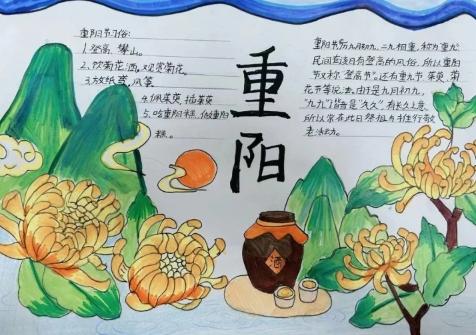 重阳节习俗:
1.登高、攀山。
2.饮菊花酒,观赏菊花。
3.放纸鸢,风筝
4.佩茱萸,插茱萸
5.吃重阳糕,做重阳糕。
重阳
重阳节为九月初九,二九相重,称为重九
民间在该日有登高的风俗,所以重阳
节又称"登高节"。还有重九节、茱萸、菊
花节等说法。由于是九月初九,
"九九"谐音是"久久",有长久之意,
所以常在此日祭祖与推行敬
老活动。
酒